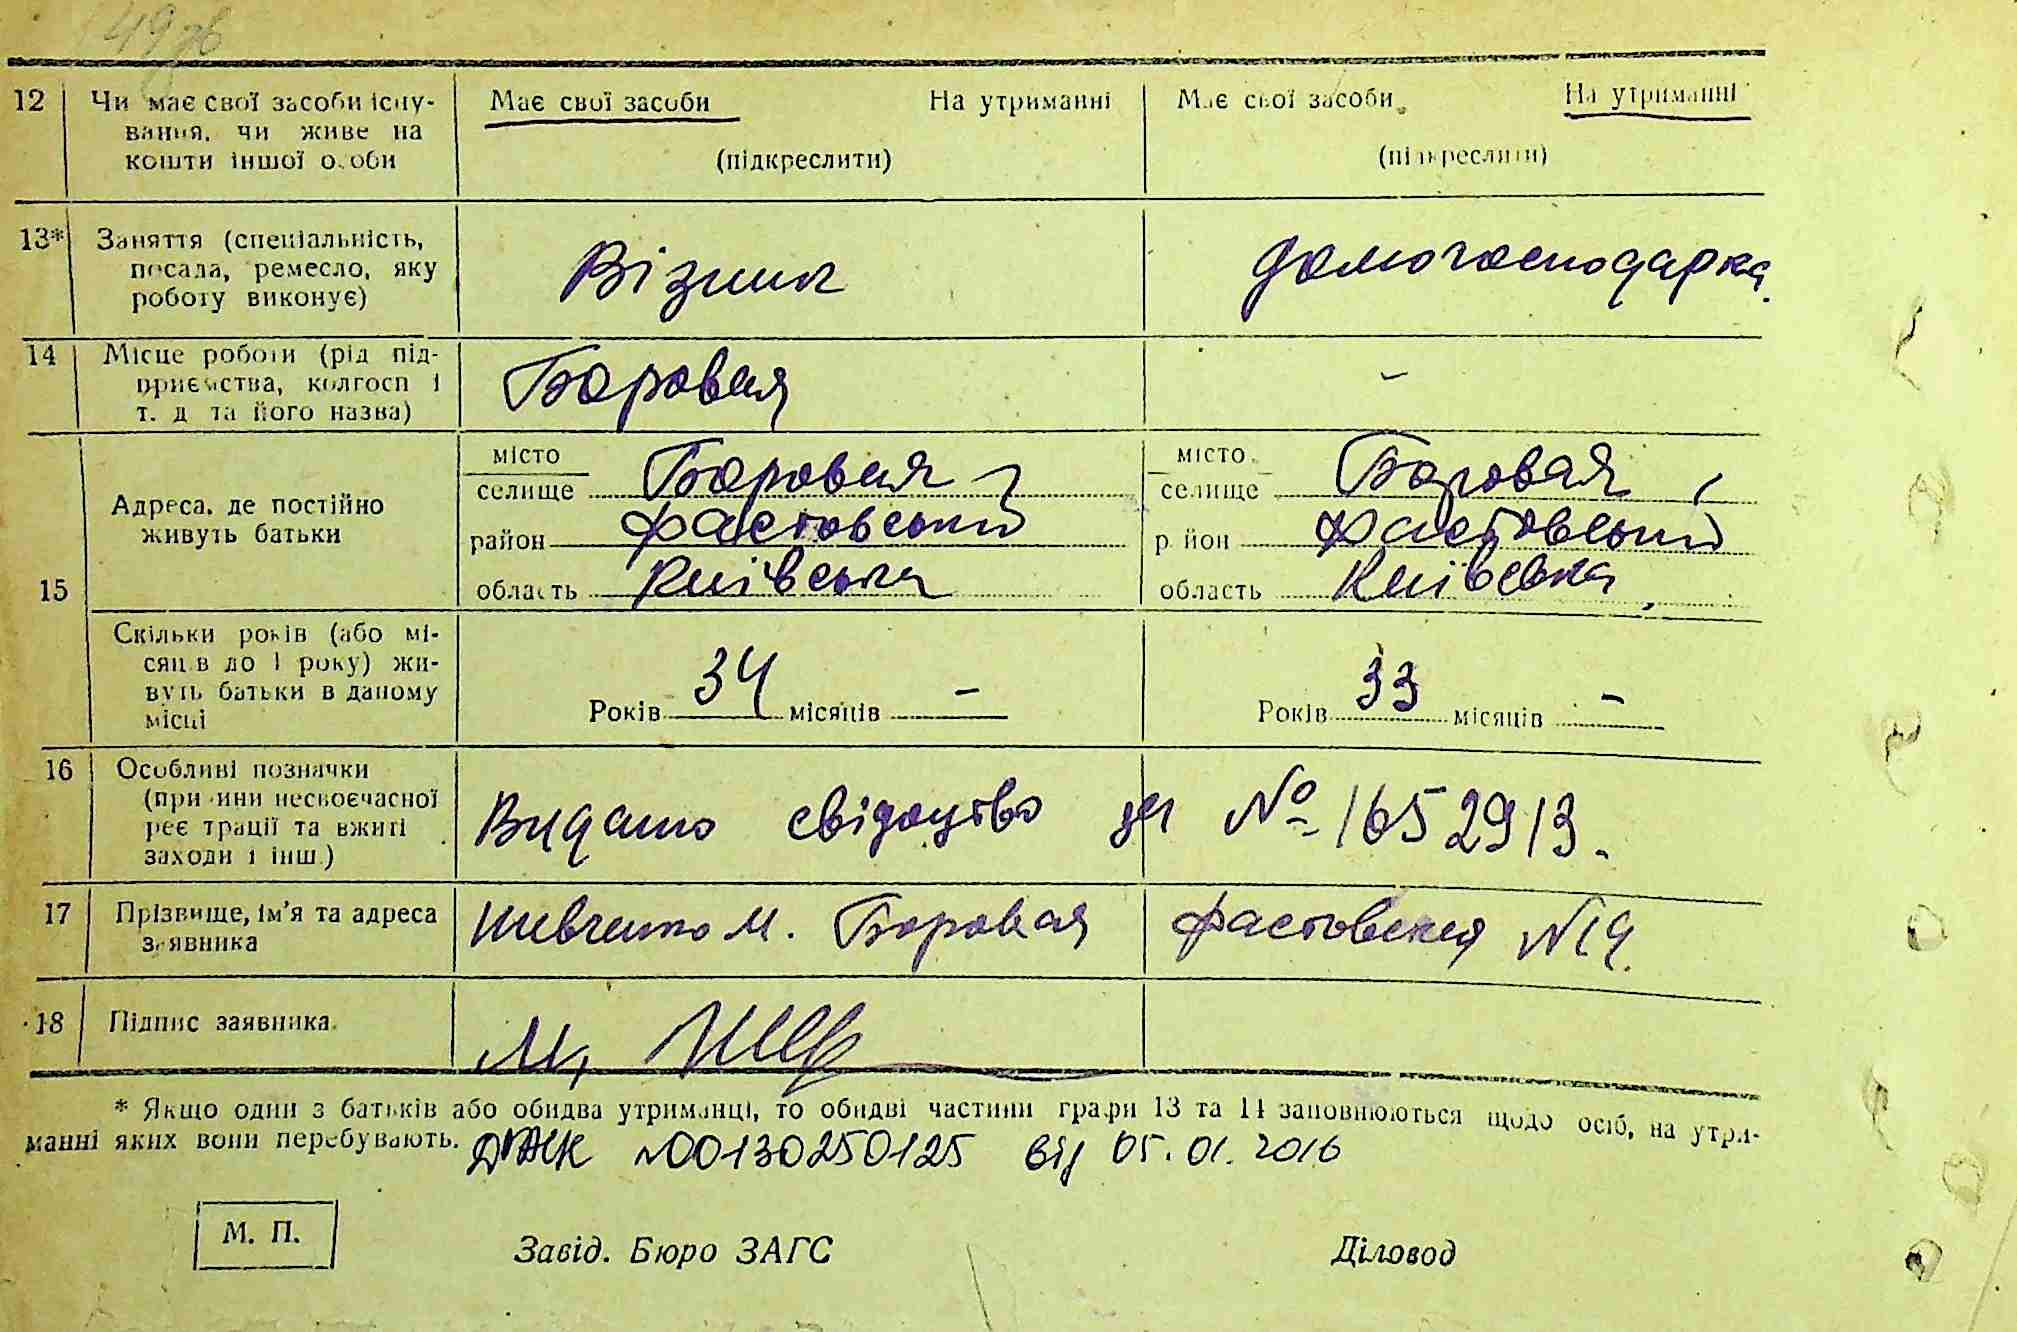 49зв
12 Чи має свої засоби існу-
вання, чи живе на
кошти іншої особи
Має свої засоби На утриманні
(підкреслити)
Має свої засоби На утриманні
(підкреслити)
13* Заняття (спеціальність,
посада, ремесло, яку
роботу виконує)
Візник
домогосподарка.
14 Місце роботи (рід під-
приємства, колгосп і
т. д та його назва)
Боровая
-
15
Адреса, де постійно
живуть батьки
місто
селище Боровая,
район Фастовський
область Київська
місто
селище Боровая,
район Фастовський
область Київська,
Скільки років (або мі-
сяців до 1 року) жи-
вуть батьки в даному
місці
Років 34 місяців -
Років 33 місяців -
16 Особливі позначки
(причини несвоєчасної
реєстрації та вжиті
заходи і інш.)
Видано свідоцтво за № 1652913.
17 Прізвище, ім'я та адреса
заявника
Шевченко М. Боровая Фастовская №14.
18 Підпис заявника
М,
* Якщо один з батьків або обидва утриманці, то обидві частини графи 13 та 14 заповнюються щодо осіб, на утри-
манні яких вони перебувають.
№00130250125 від 05.01.2016
М. П.
Завід. Бюро ЗАГС
Діловод